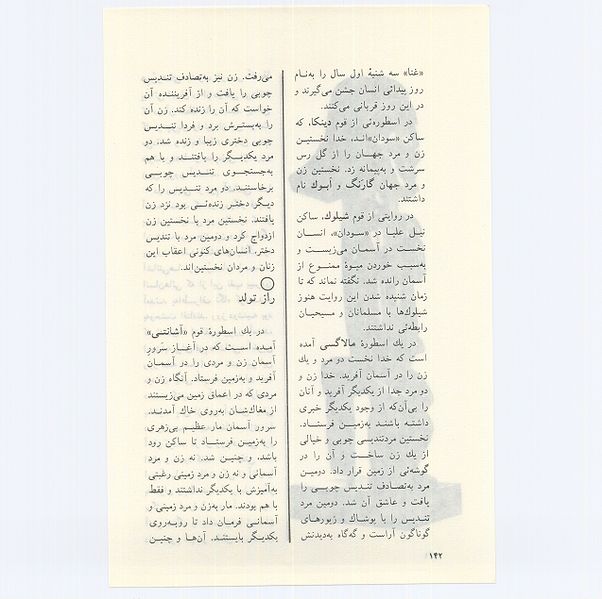 «غنا» سه شنبهٔ اول سال را به‌نام
روز پیدائی انسان جشن می‌گیرند و
در این روز قربانی می‌کنند.
در اسطوره‌ئی از قوم دینکا، که
ساکن «سودان»اند، خدا نخستین
زن و مرد جهان را از گل رس
سرشت و به‌پیمانه زد. نخستین زن
و مرد جهان گارَنگ و اَبوك نام
داشتند.
در روایتی از قوم شیلوك، ساکن
نیل علیا در «سودان»، انسان
نخست در آسمان می‌زیست و
به‌سبب خوردن میوهٔ ممنوع از
آسمان رانده شد. نگفته نماند که تا
زمان شنیده شدن این روایت هنوز
شیلوك‌ها با مسلمانان و مسیحیان
رابطه‌ئی نداشتند.
در یك اسطورهٔ مالاگسی آمده
است که خدا نخست دو مرد و یك
زن را در آسمان آفرید. خدا زن و
دو مرد جدا از یکدیگر آفرید و آنان
را بی‌آن‌که از وجود یکدیگر خبری
داشته باشند به‌زمین فرستاد.
نخستین مردتندیسی چوبی و خیالی
از یك زن ساخت و آن را در
گوشه‌ئی از زمین قرار داد. دومین
مرد به‌تصادف تندیس چوبی را
یافت و عاشق آن شد. دومین مرد
تندیس را با پوشاك و زیورهای
گوناگون آراست و گه‌گاه به‌دیدنش
می‌رفت. زن نیز به‌تصادف تندیس
چوبی را یافت و از آفریننده آن
خواست که آن را زنده کند. زن آن
را به‌بسترش برد و فردا تندیس
چوبی دختری زیبا و زنده شد. دو
مرد یکدیگر را یافتند و با هم
به‌جستجوی تندیس چوبی
برخاستند. دو مرد تندیس را که
دیگر دختر زنده‌ئی بود نزد زن
یافتند. نخستین مرد با نخستین زن
ازدواج کرد و دومین مرد با تندیس
دختر. انسان‌های کنونی اعقاب این
زنان و مردان نخستین‌اند.
راز تولد
در یك اسطورهٔ قوم «آشانتی»
آمده است که در آغاز سَروَرِ
آسمان زن و مردی را در آسمان
آفرید و به‌زمین فرستاد. آنگاه زن و
مردی که در اعماق زمین می‌زیستند
از مغاك‌شان به‌روی خاك آمدند.
سرور آسمان مار عظیم بی‌زهری
را به‌زمین فرستاد تا ساکن رود
باشد، و چنین شد. نه زن و مرد
آسمانی و نه زن و مرد زمینی رغبتی
به‌آمیزش با یکدیگر نداشتند و فقط
با هم بودند. مار به‌زن و مرد زمینی و
آسمانی فرمان داد تا روبه‌روی
یکدیگر بایستند. آن‌ها و چنین
۱۴۲